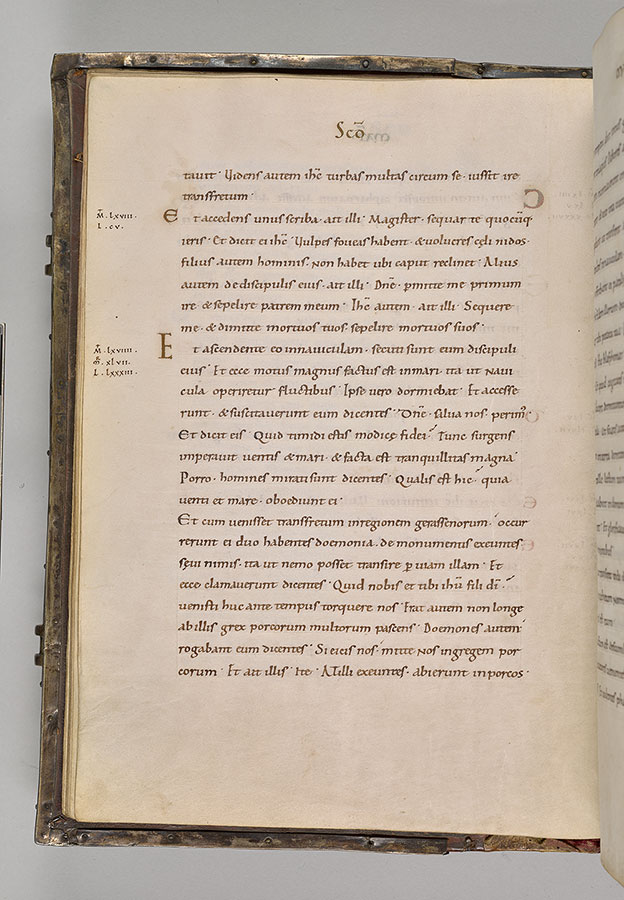 Scd̄
tavit · Videns autem ihc̄ turbas multas circum se · iussit ire
transfretum ·
M̄ · LXVIII ·
L · CV ·
Et accedens unus scriba · ait illi · Magister · sequar te quocūq;
ieris · Et dicit ei ihc̄ · Vulpes foveas habent · & volucres cęli nidos ·
filius autem hominis · Non habet ubi caput reclinet · Alius
autem de discipulis eius · ait illi · Dn̄e · pmitte me primum
ire & sepelire patrem meum · Ihc̄ autem · ait illi · Sequere
me · & dimitte mortuos tuos · sepelire mortuos suos ·
M̄ · LXVIIII ·
LXXXIII ·
Et ascendente eo innaviculam · secuti sunt eum discipuli
eius · Et ecce motus magnus factus est inmari · ita ut navi
cula operiretur fluctibus · Ipse vero dormiebat · Et accesse
runt · & suscitaverunt eum dicentes · Dn̄e · salva nos · perim'
Et dicit eis · Quid timidi estis modicę fidei · Tunc surgens
imperavit ventis & mari · & facta est tranquillitas magna ·
Porro · homines mirati sunt dicentes · Qualis est hic · quia
venti et mare · oboediunt ei ·
Et cum venisset transfretum inregionem gerassenorum · occur
rerunt ei duo habentes doemonia · de monumentis exeuntes ·
sęvi nimis · ita ut nemo posset transire p viam illam · Et
ecce clamaverunt dicentes · Quid nobis et tibi ihū fili dī ·
venisti huc ante tempus torquere nos · Erat autem non longe
ab illis grex porcorum multorum pascens · Doemones autem
rogabant eum dicentes · Si eicis nos · mitte nos ingregem por
corum · Et ait illis · Ite · At illi exeuntes · abierunt in porcos ·